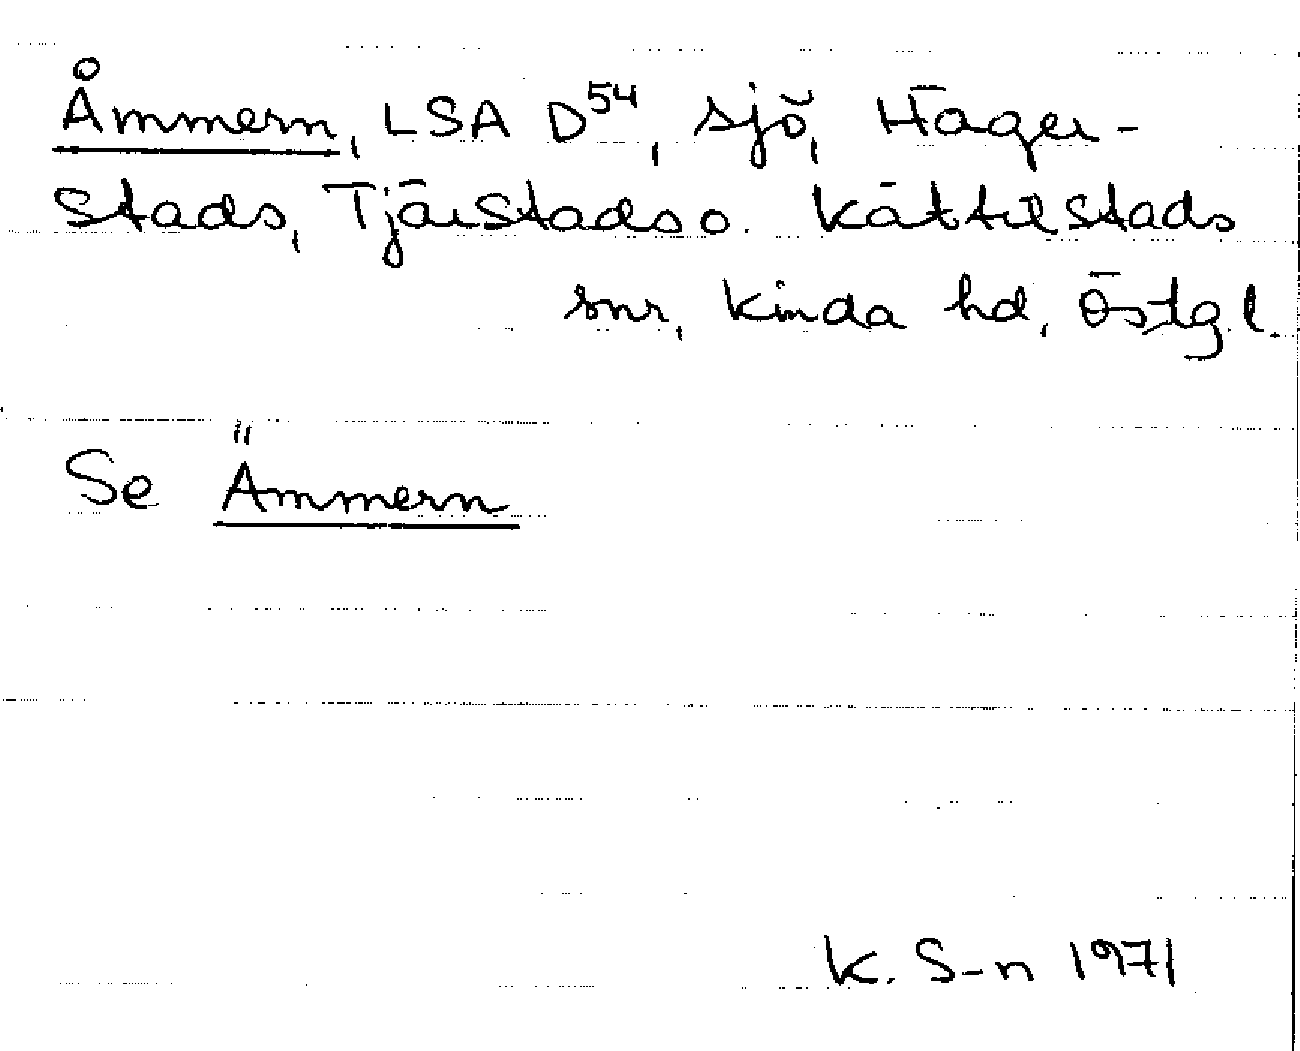 Åmmern, LSA D⁵⁴, sjö, Häger-
stads, Tjärstads o. Kättilstads
snr, Kinda hd, Östgl.
Se Ämmern
K. S-n 1971